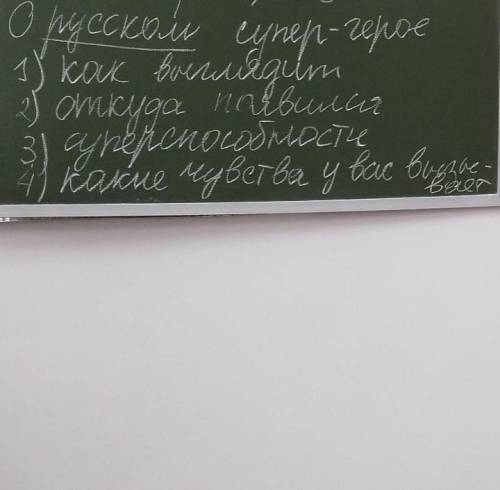 О русском супер-герое
1) как выглядит
2) откуда появился
3) суперспособности
4) какие чувства у вас вызы-
вает